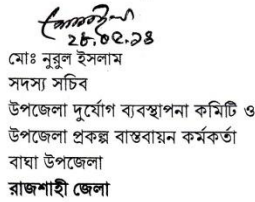 ২৮.০৫.২৪
মোঃ নুরুল ইসলাম
সদস্য সচিব
উপজেলা দুর্যোগ ব্যবস্থাপনা কমিটি ও
উপজেলা প্রকল্প বাস্তবায়ন কর্মকর্তা
বাঘা উপজেলা
রাজশাহী জেলা